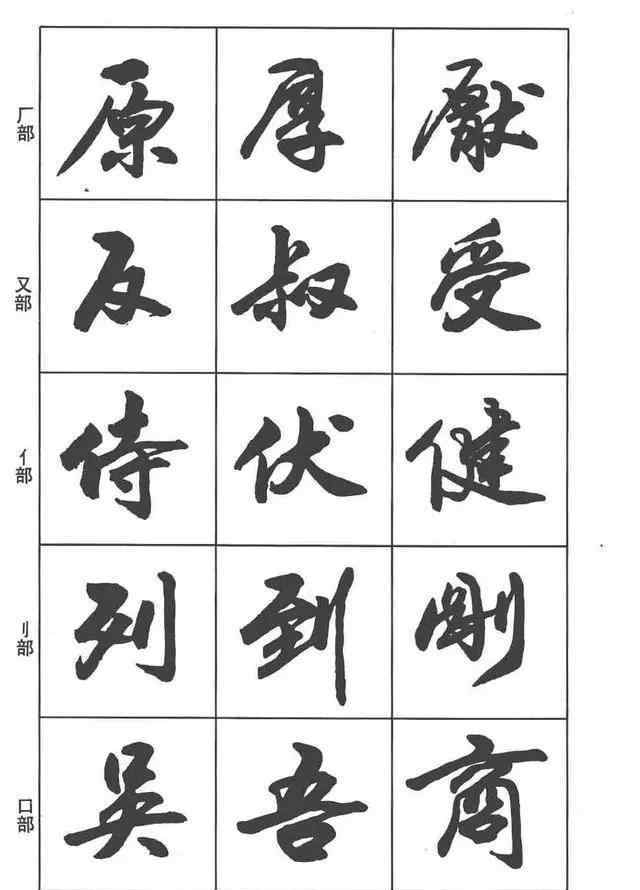 厂部 原 厚 厭
又部 反 叔 受
亻部 侍 伏 健
刂部 列 到 剛
口部 吴 吾 商